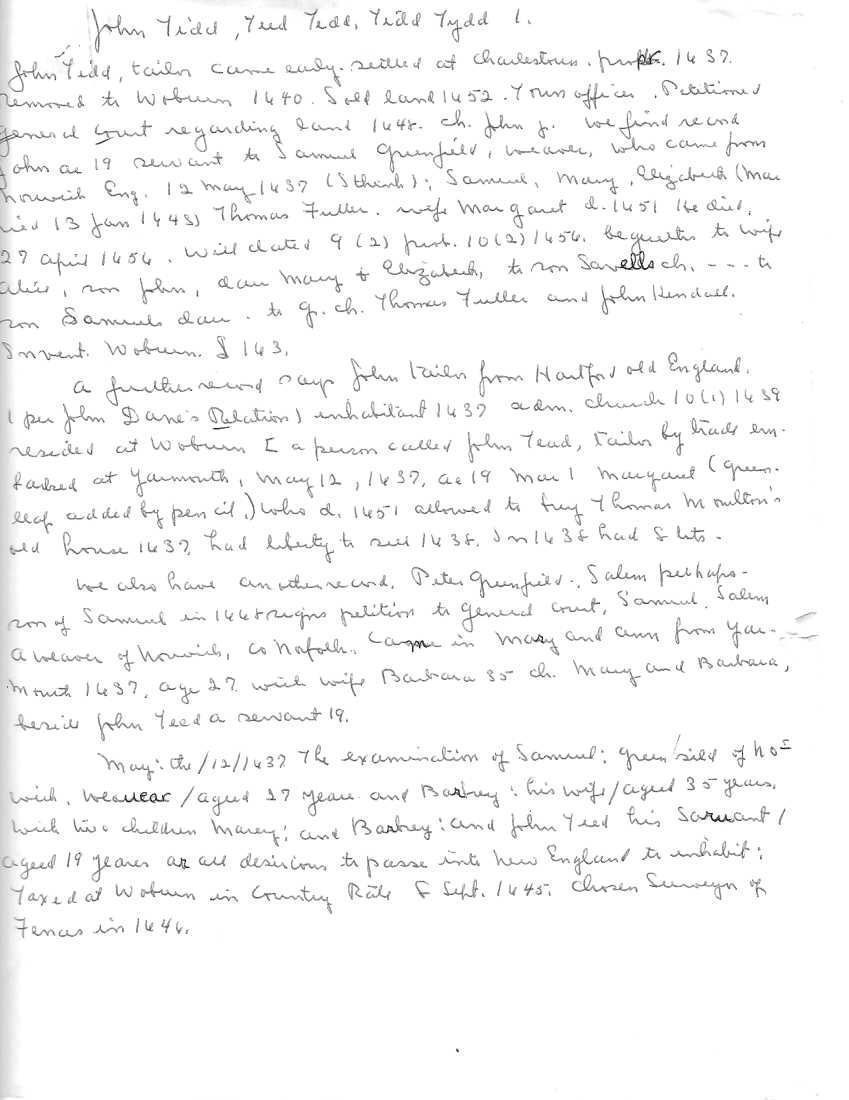 John Tidd, Teed Tedd, Tidd Tydd 1.
John Tidd, tailor came early. settled at Charlestown. 1637.
removed to Woburn 1640. Sold land 1652. Town officer. Petitioned
general Court regarding land 1648. ch. John j. We find record
John ae 19 servant to Samuel Greenfield, weaver, who came from
Norwich Eng. 12 May 1637 (S think); Samuel, Mary, Elizabeth (Mar
ried 13 Jan 1643) Thomas Fuller. wife Margaret d. 1651 He died,
27 april 1656. Will dated 9 (2) prob. 10 (2) 1656. bequeths to wife
Alice, son John, dau Mary & Elizabeth, to son Savells ch. - - - - to
son Samuels dau. to g. ch. Thomas Fuller and John Kendall.
Invent. Woburn. £ 163.
A further record says John tailor from Hartford old England.
(per John Dane's Relation) inhabitant 1637 adm. church 10 (1) 1639
resided at Woburn [ a person called John Tead, tailor by trade em-
barked at Yarmouth, May 12, 1637, ae 19 Mar 1 Margaret (Green-
leaf added by pencil.) who d. 1651 allowed to buy Thomas Moulton's
old house 1637, had liberty to sell 1638. In 1638 had 8 lots.
We also have another record. Peter Greenfield., Salem perhaps-
son of Samuel in 1668 signs petition to General Court, Samuel. Salem
A weaver of Norwich, Co Norfolk. Came in Mary and Ann from Yar-
mouth 1637, age 27 with wife Barbara 35 ch. Mary and Barbara,
beside John Teed a servant 19.
May: the /12/1637 The examination of Samuel: Green/feild of No
wich, weauear /aged 27 yeare and Barbrey: his wife/aged 35 years,
with two children Marey: and Barbrey: and John Teed his Saruant /
ageed 19 yeares ar all desirious to passe into New England to inhabit:
Taxed at Woburn in Country Rate 8 Sept. 1645. Chosen Surveyor of
Fences in 1646.